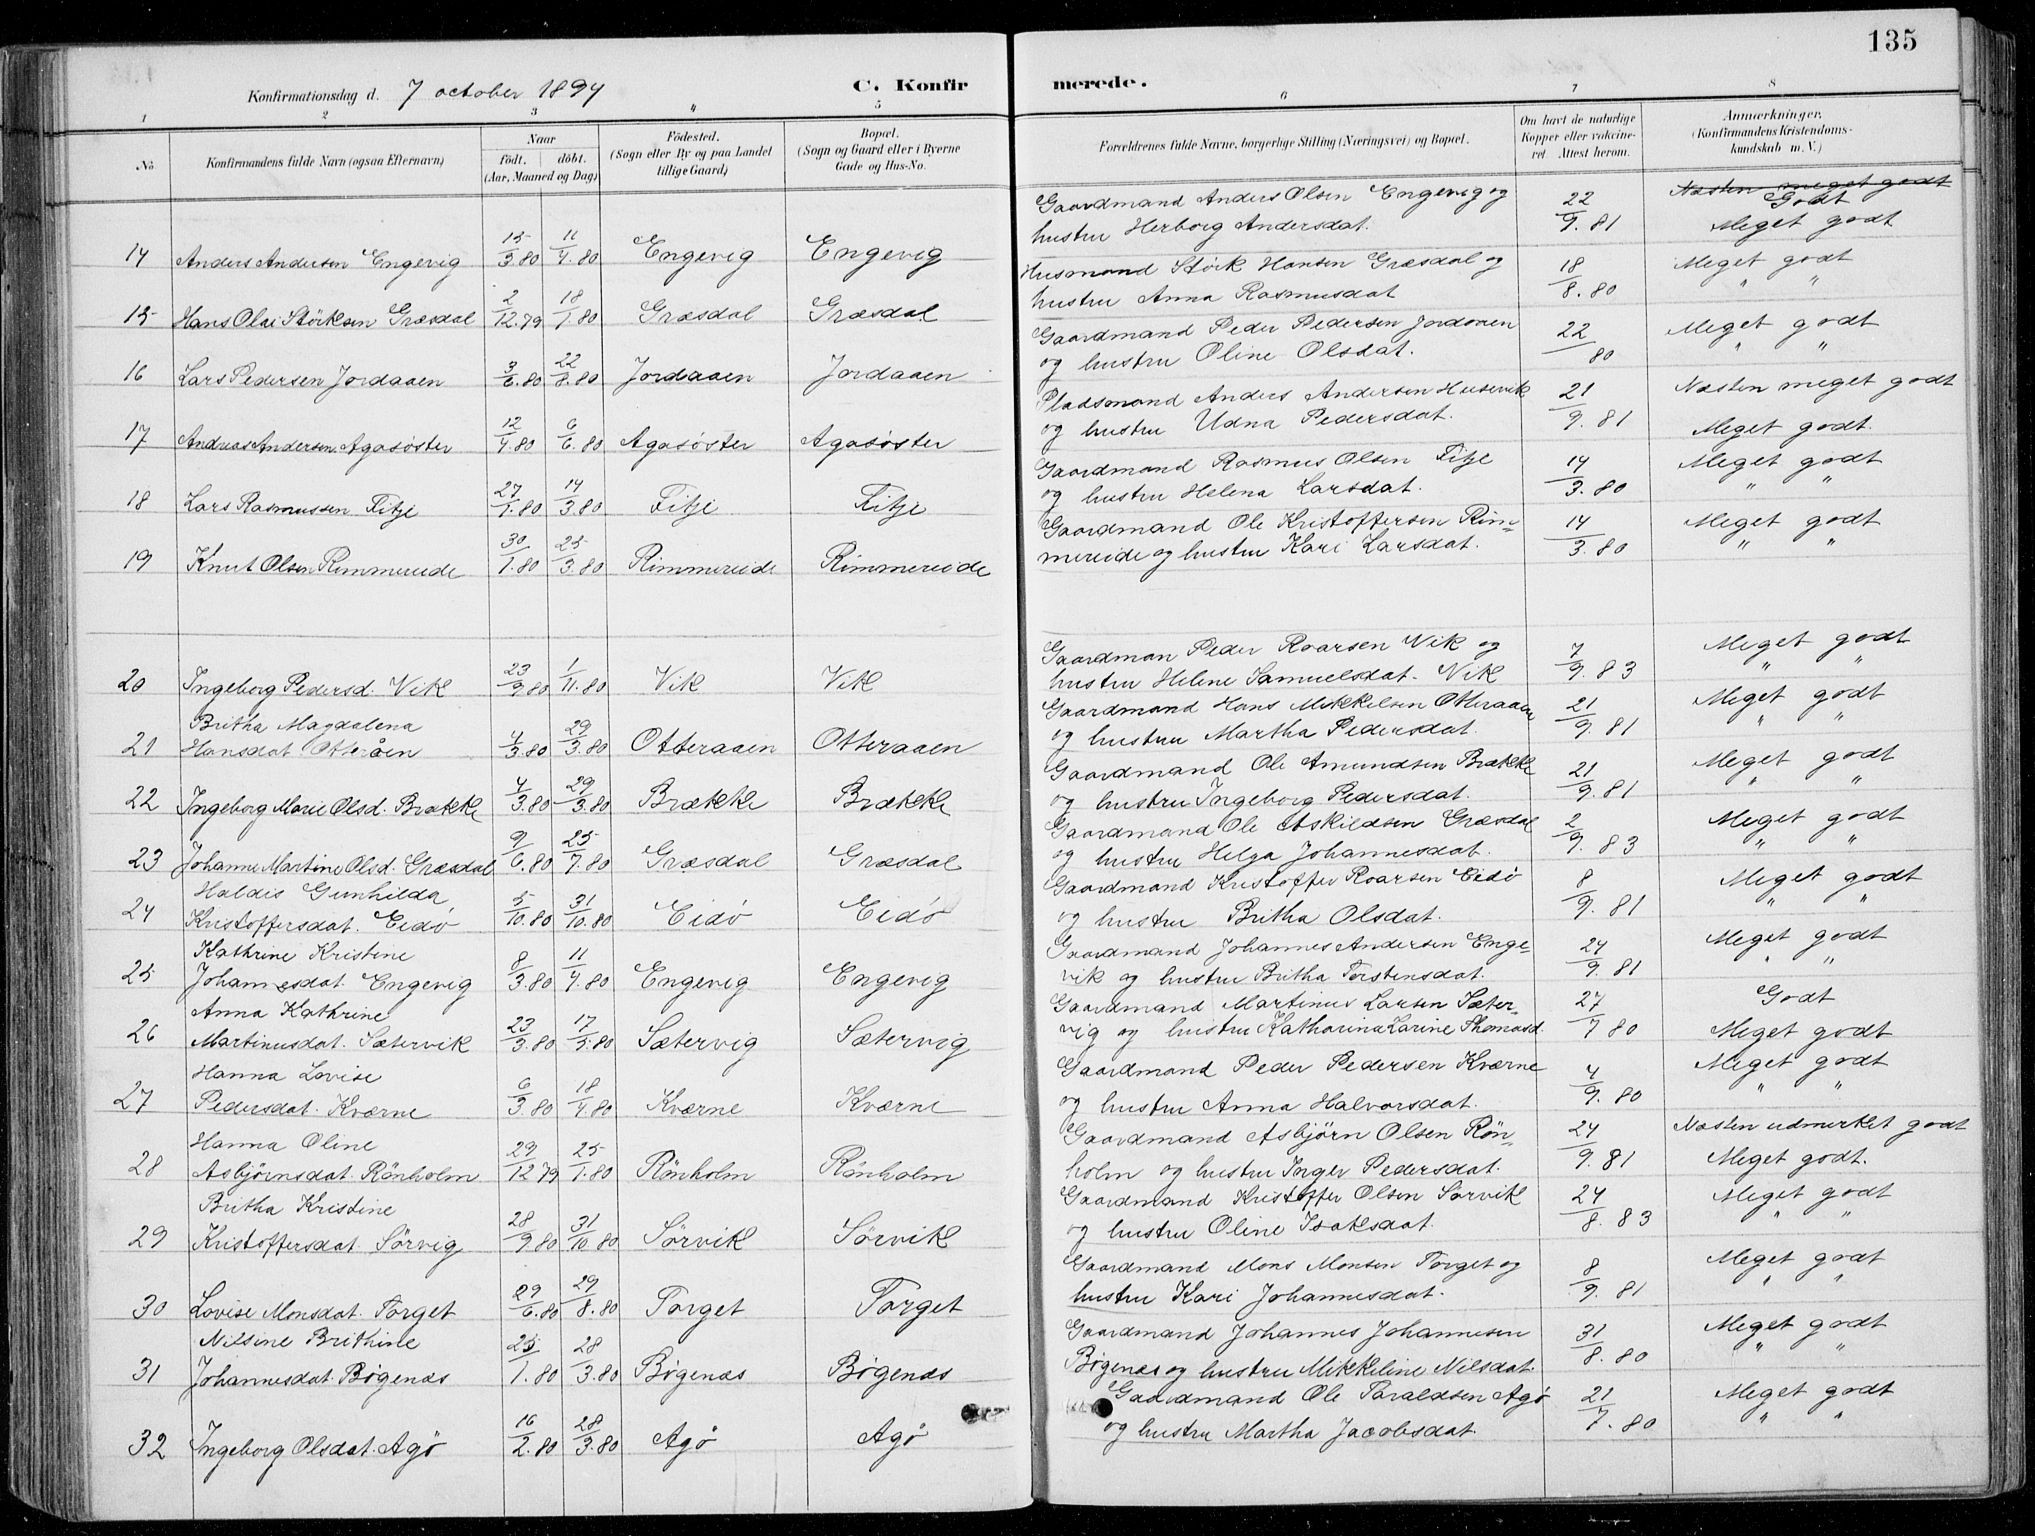 135
Konfirmationsdag d. 7 october 1894
C. Konfirmerede.
1 2 3 4 5 6 7 8
No
Konfirmandens fulde Navn (ogsaa Efternavn)
Naar
födt. döbt.
(Aar, Maaned og Dag)
Födested.
(Sogn eller By og paa Landet
tillige Gaard)
Bopæl.
(Sogn og Gaard eller i Byerne
Gade og Hus-No.
Forældrenes fulde Navne, borgerlige Stilling (Næringsvei) og Bopæl.
Om havt de naturlige
Kopper eller vakcine-
ret. Attest herom.
Anmærkninger.
(Konfirmandens Kristendoms-
kundskab m. V.)
14 Anders Andersen Engevig 15/3.80 11/4.80 Engevig Engevig
Gaardmand Anders Olsen Engevig og
hustru Herborg Andersdat. 22/9.81
Næsten meget godt
Godt
Meget godt
15 Hans Olai Störksen Græsdal 2/12.79 18/1.80 Græsdal Græsdal
Husmand Störk Hansen Græsdal og
hustru Anna Rasmusdat 18/8.80
Meget godt
" "
16 Lars Pedersen Jordaaen 3/6.80 22/8.80 Jordaaen Jordaaen
Gaardmand Peder Pedersen Jordaaen
og hustru Oline Olsdat. 22/ 80
Meget godt
" "
17 Andreas Andersen Agasøster 12/4.80 6/6.80 Agasøster Agasøster
Pladsmand Anders Andersen Husevik
og hustru Udna Pedersdat. 21/9.81
Næsten meget godt
Meget godt.
18 Lars Rasmussen Fitje 27/1.80 14/3.80 Fitje Fitje
Gaardmand Rasmus Olsen Fitje
og hustru Helena Larsdat. 14/3.80
Meget godt
" "
19 Knut Olsen Rimmereide 30/1.80 25/3.80 Rimmereide Rimmereide
Gaardmand Ole Kristoffersen Rim-
mereide og hustru Kari Larsdat. 14/3.80
Meget godt
" "
20 Ingeborg Pedersd. Vik 23/9.80 1/11.80 Vik Vik
Gaardman Peder Roarsen Vik og
hustru Helene Samuelsdat. Vik 7/9.83
Meget godt
" "
Britha Magdalena
21 Hansdat Otteråen 4/3.80 29/3.80 Otteraaen Otteraaen
Gaardmand Hans Mikkelsen Otteraaen
og hustru Martha Pedersdat. 21/9.81
Meget godt
" "
22 Ingeborg Marie Olsd. Brække 4/3.80 29/3.80 Brække Brække
Gaardmand Ole Amundsen Brække
og hustru Ingeborg Pedersdat. 21/9.81
Meget godt
" "
23 Johanne Martine Olsd. Græsdal 9/6.80 25/7.80 Græsdal Græsdal
Gaardmand Ole Askildsen Græsdal
og hustru Helga Johannesdat. 2/9.83
Meget godt
" "
Haldis Gunhilda
24 Kristoffersdat. Eidø 5/10.80 31/10.80 Eidø Eidø
Gaardmand Kristoffer Roarsen Eidø
og hustru Britha Olsdat. 8/9.81
Meget godt
" "
Kathrine Kristine
25 Johannesdat. Engevig 8/3.80 11/4.80 Engevig Engevig
Gaardmand Johannes Andersen Enge-
vik og hustru Britha Torstensdat. 24/9.81
Meget godt
" "
Anna Kathrine
26 Martinusdat. Sætervik 23/3.80 17/5.80 Sætervig Sætervig
Gaardmand Martinus Larsen Sæter-
vig og hustru Katharina Larine Thomasd. 27/7 80
Godt
Meget godt
Hanna Lovise
27 Pedersdat. Kværne 6/3.80 18/4.80 Kværne Kværne
Gaardmand Peder Pedersen Kværne
og hustru Anna Halvorsdat. 4/9.80
Meget godt
" "
Hanna Oline
28 Asbjørnsdat. Rönholm 29/12 79 25/1.80 Rönholm Rönholm
Gaardmand Asbjörn Olsen Rön-
holm og hustru Inger Pedersdat. 24/9.81
Næsten udmerket godt
Meget godt.
Britha Kristine
29 Kristoffersdat. Sörvig 28/9 80 31/10 80 Sörvik Sörvik
Gaardmand Kristoffer Olsen Sörvik
og hustru Oline Isaksdat. 24/8.83
Meget godt
" "
30 Lovise Monsdat. Torget 29/6.80 29/8.80 Torget Torget
Gaardmand Mons Monsen Torget og
hustru Kari Johannesdat. 8/9.81
Meget godt
" "
Nilsine Brithine
31 Johannesdat. Bøgenæs 25/1.80 28/3.80 Bøgenæs Bøgenæs
Gaardmand Johannes Johannesen
Bøgenæs og hustru Mikkeline Nilsdat. 31/8.80
Meget godt
" "
32 Ingeborg Olsdat. Agø 16/2.80 28/3.80 Agø Agø
Gaardmand Ole Taraldsen Agø
og hustru Martha Jacobsdat. 21/7.80
Meget godt
" "